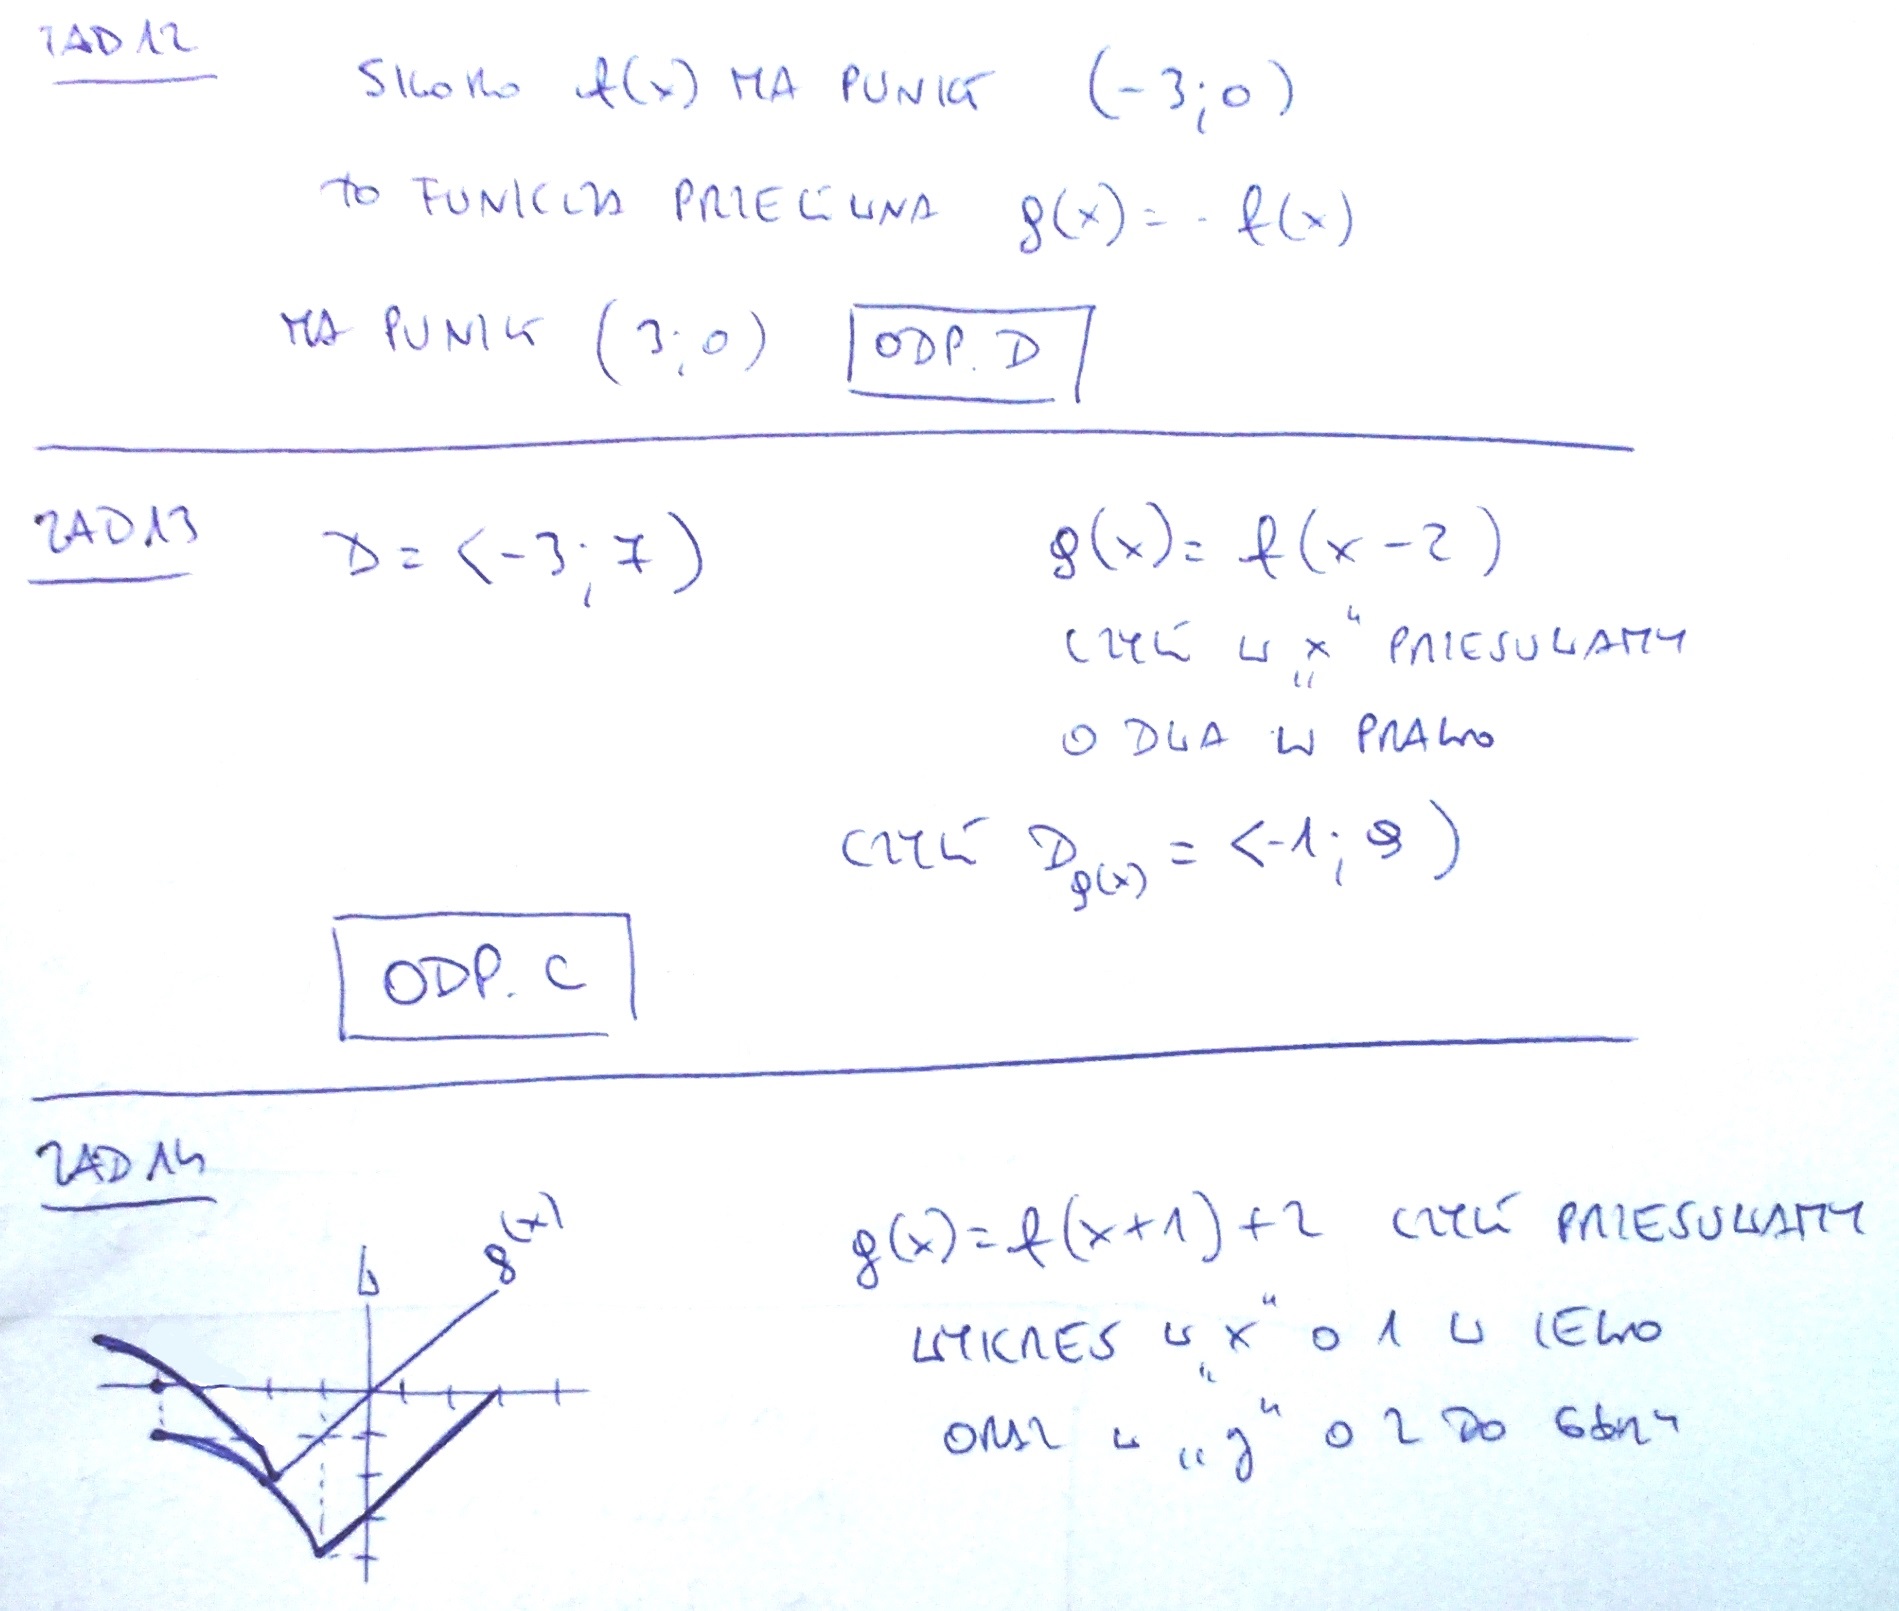 ZAD 12
SKORO f(x) MA PUNKT (-3;0)
to FUNKCJA PRZECIWNA g(x) = - f(x)
MA PUNKT (3;0) ODP. D
ZAD 13
D = <-3;7)
g(x) = f(x-2)
CZYLI W „x" PRZESUWAMY
O DWA W PRAWO
CZYLI D g(x) = <-1;9)
ODP. C
ZAD 14
g(x)
g(x) = f(x+1)+2 CZYLI PRZESUWAMY
WYKRES W „x" O 1 W LEWO
ORAZ W „y" O 2 DO GÓRY